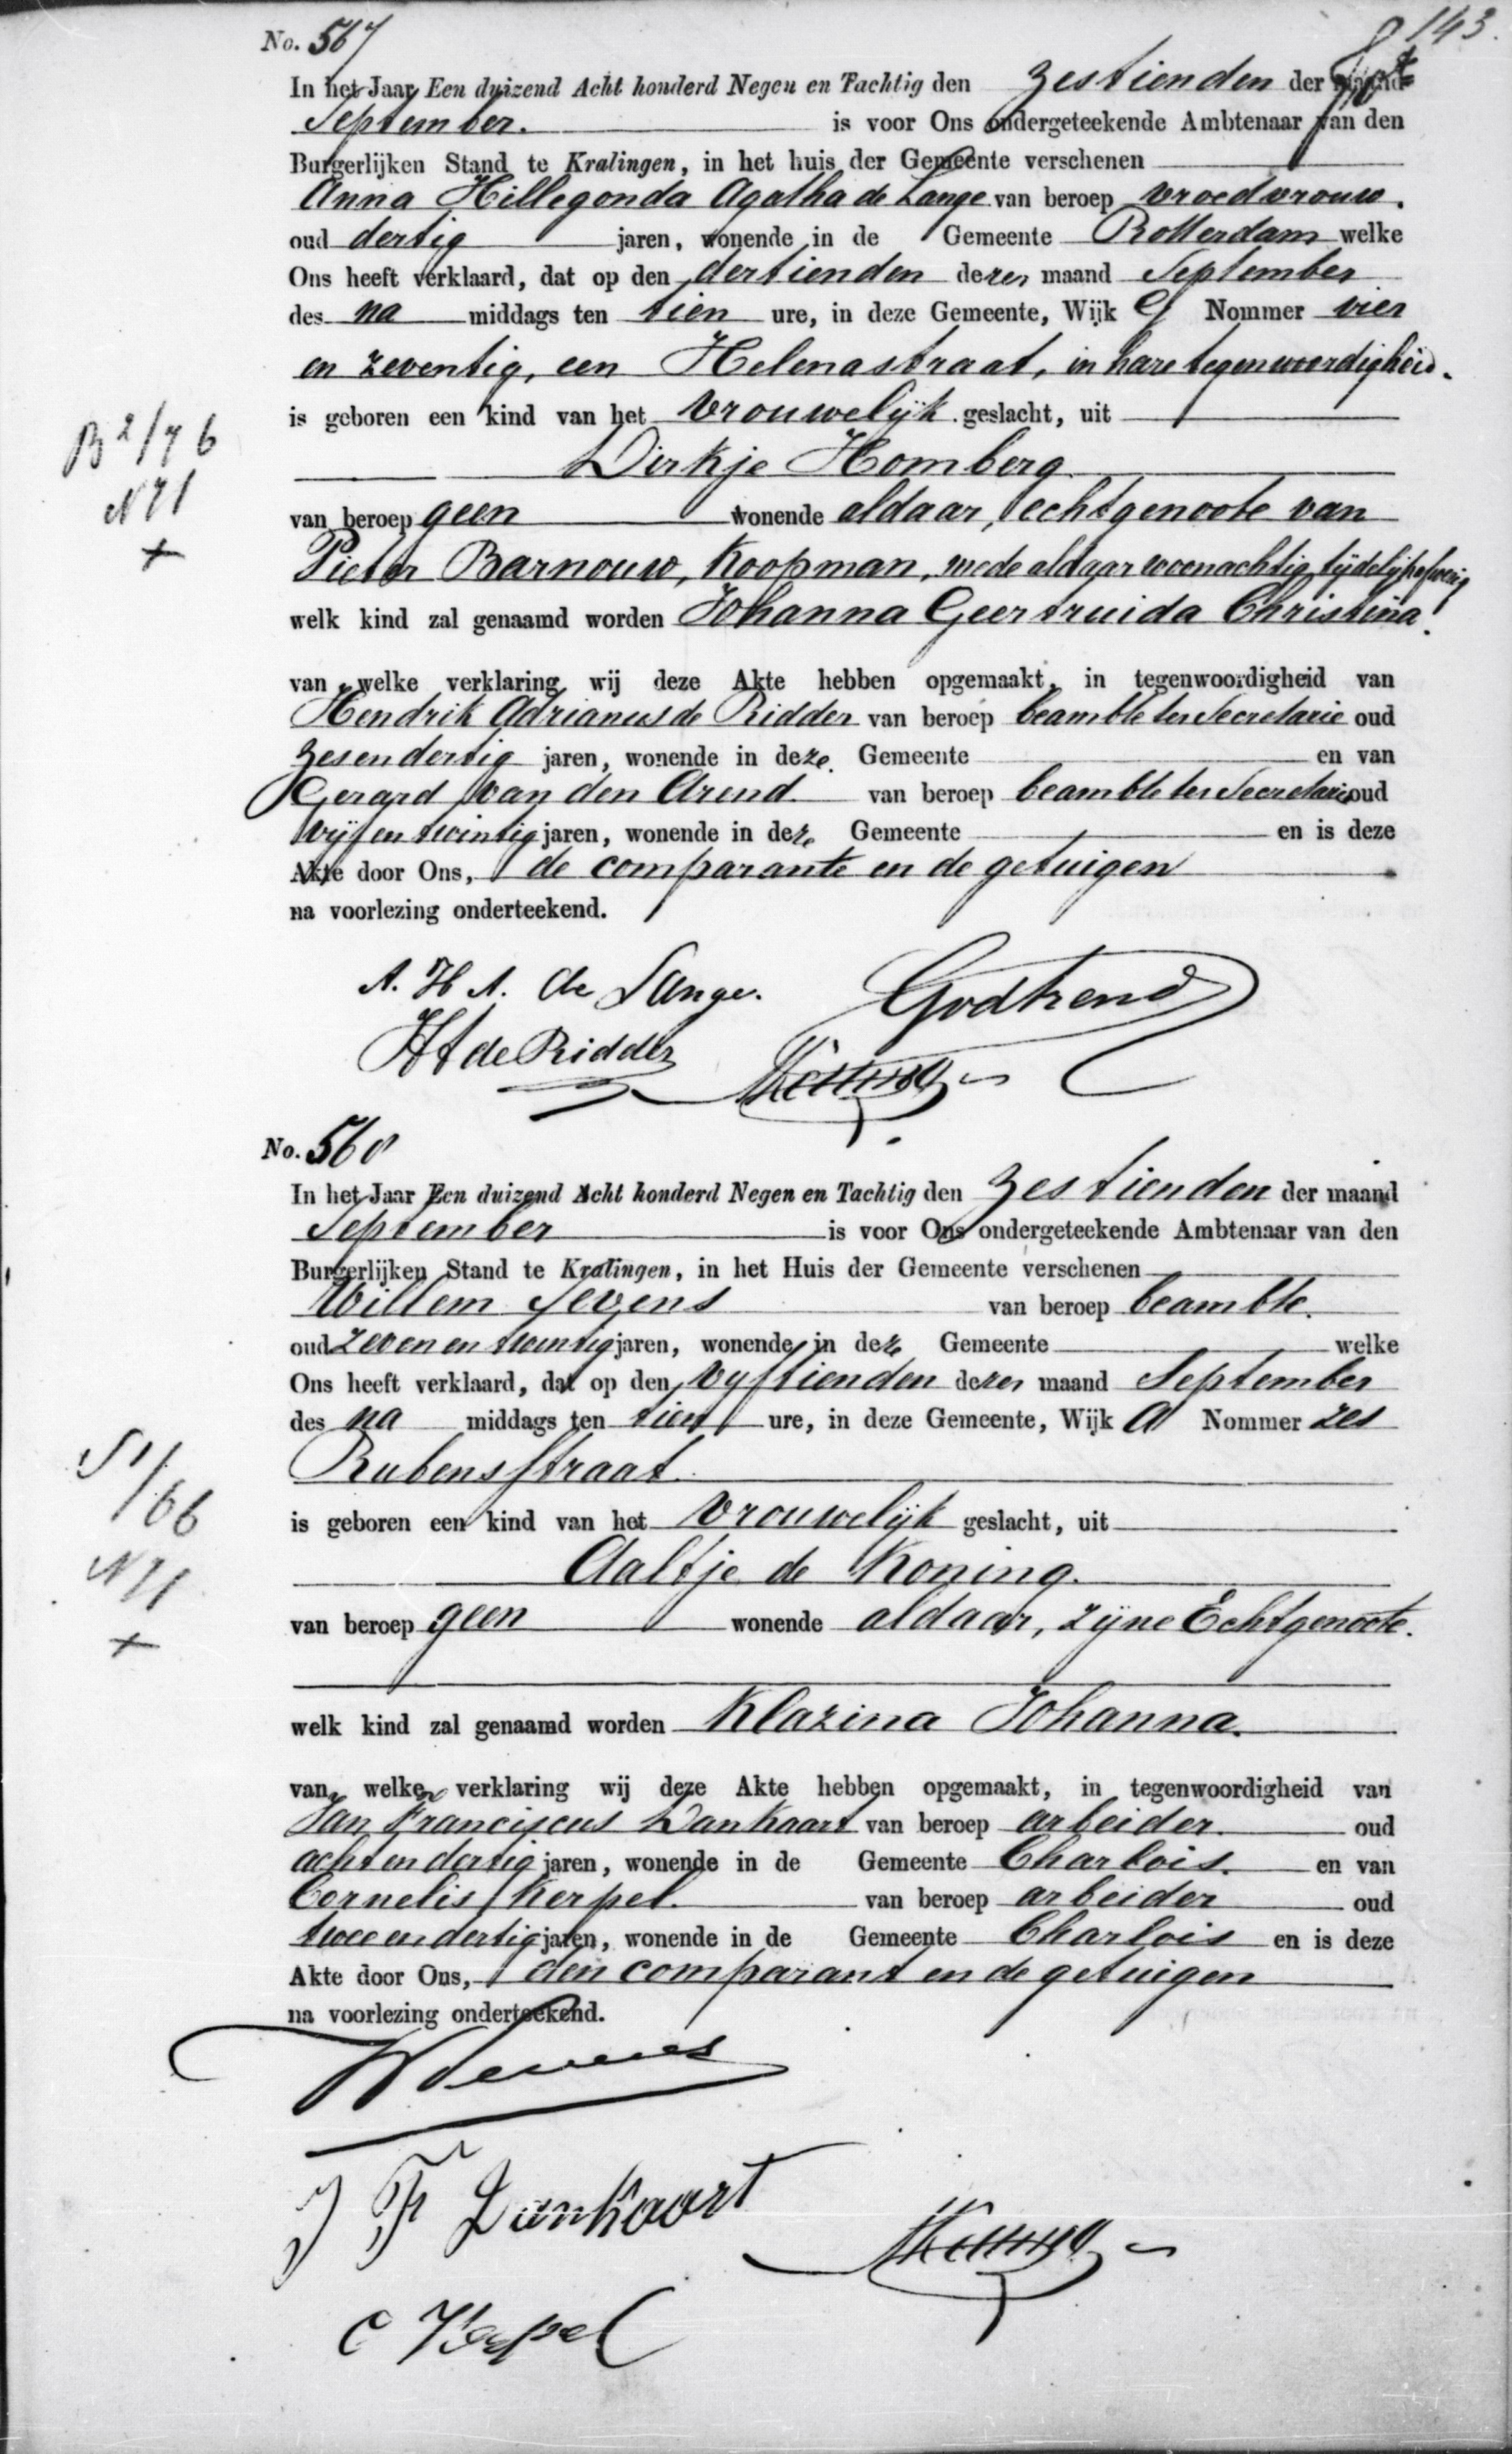 143.
No. 567
In het Jaar Een duizend Acht honderd Negen en Tachtig den zestienden der maand
September. is voor Ons ondergeteekende Ambtenaar van den
Burgerlijken Stand te Kralingen, in het huis der Gemeente verschenen
Anna Hillegonda Agatha de Lange van beroep vroedvrouw.
oud dertig jaren, wonende in de Gemeente Rotterdam welke
Ons heeft verklaard, dat op den dertienden dezer maand September
des na middags ten tien ure, in deze Gemeente, Wijk Nommer vier
en zeventig, een Helenastraat, in hare tegenwoordigheid.
is geboren een kind van het vrouwelijk geslacht, uit
B 2/76
Dirkje Homberg
N71
van beroep geen wonende aldaar, echtgenoote van
+
Pieter Barnouw, Koopman, mede aldaar woonachtig, tijdelijk afwezig
welk kind zal genaamd worden Johanna Geertruida Christina.
van welke verklaring wij deze Akte hebben opgemaakt, in tegenwoordigheid van
Hendrik Adrianus de Ridder van beroep beambte ter Secretarie oud
zesendertig jaren, wonende in deze Gemeente en van
Gerard van den Arend van beroep beambte ter Secretarie oud
vijfentwintig jaren, wonende in deze Gemeente en is deze
Akte door Ons, de comparante en de getuigen
na voorlezing onderteekend.
A. H A. de Lange.
HA de Ridder
No. 568
In het Jaar Een duizend Acht honderd Negen en Tachtig den zestienden der maand
September is voor Ons ondergeteekende Ambtenaar van den
Burgerlijken Stand te Kralingen, in het Huis der Gemeente verschenen
Willem Sevens van beroep beambte.
oud zevenentwintig jaren, wonende in deze Gemeente welke
Ons heeft verklaard, dat op den vyftienden dezer maand September
des na middags ten tien ure, in deze Gemeente, Wijk A Nommer zes
Rubensstraat.
S 1/66
is geboren een kind van het vrouwelijk geslacht, uit
Aaltje de Koning.
N71
van beroep geen wonende aldaar, zijne Echtgenoote.
+
welk kind zal genaamd worden Klazina Johanna.
van welke verklaring wij deze Akte hebben opgemaakt, in tegenwoordigheid van
Jan Franciscus Dankaart van beroep arbeider oud
achtendertig jaren, wonende in de Gemeente Charlois. en van
Cornelis Kerpel. van beroep arbeider oud
tweeendertig jaren, wonende in de Gemeente Charlois en is deze
Akte door Ons, den comparant en de getuigen
na voorlezing onderteekend.
W Sevens
J F Dankaart
C Kerpel